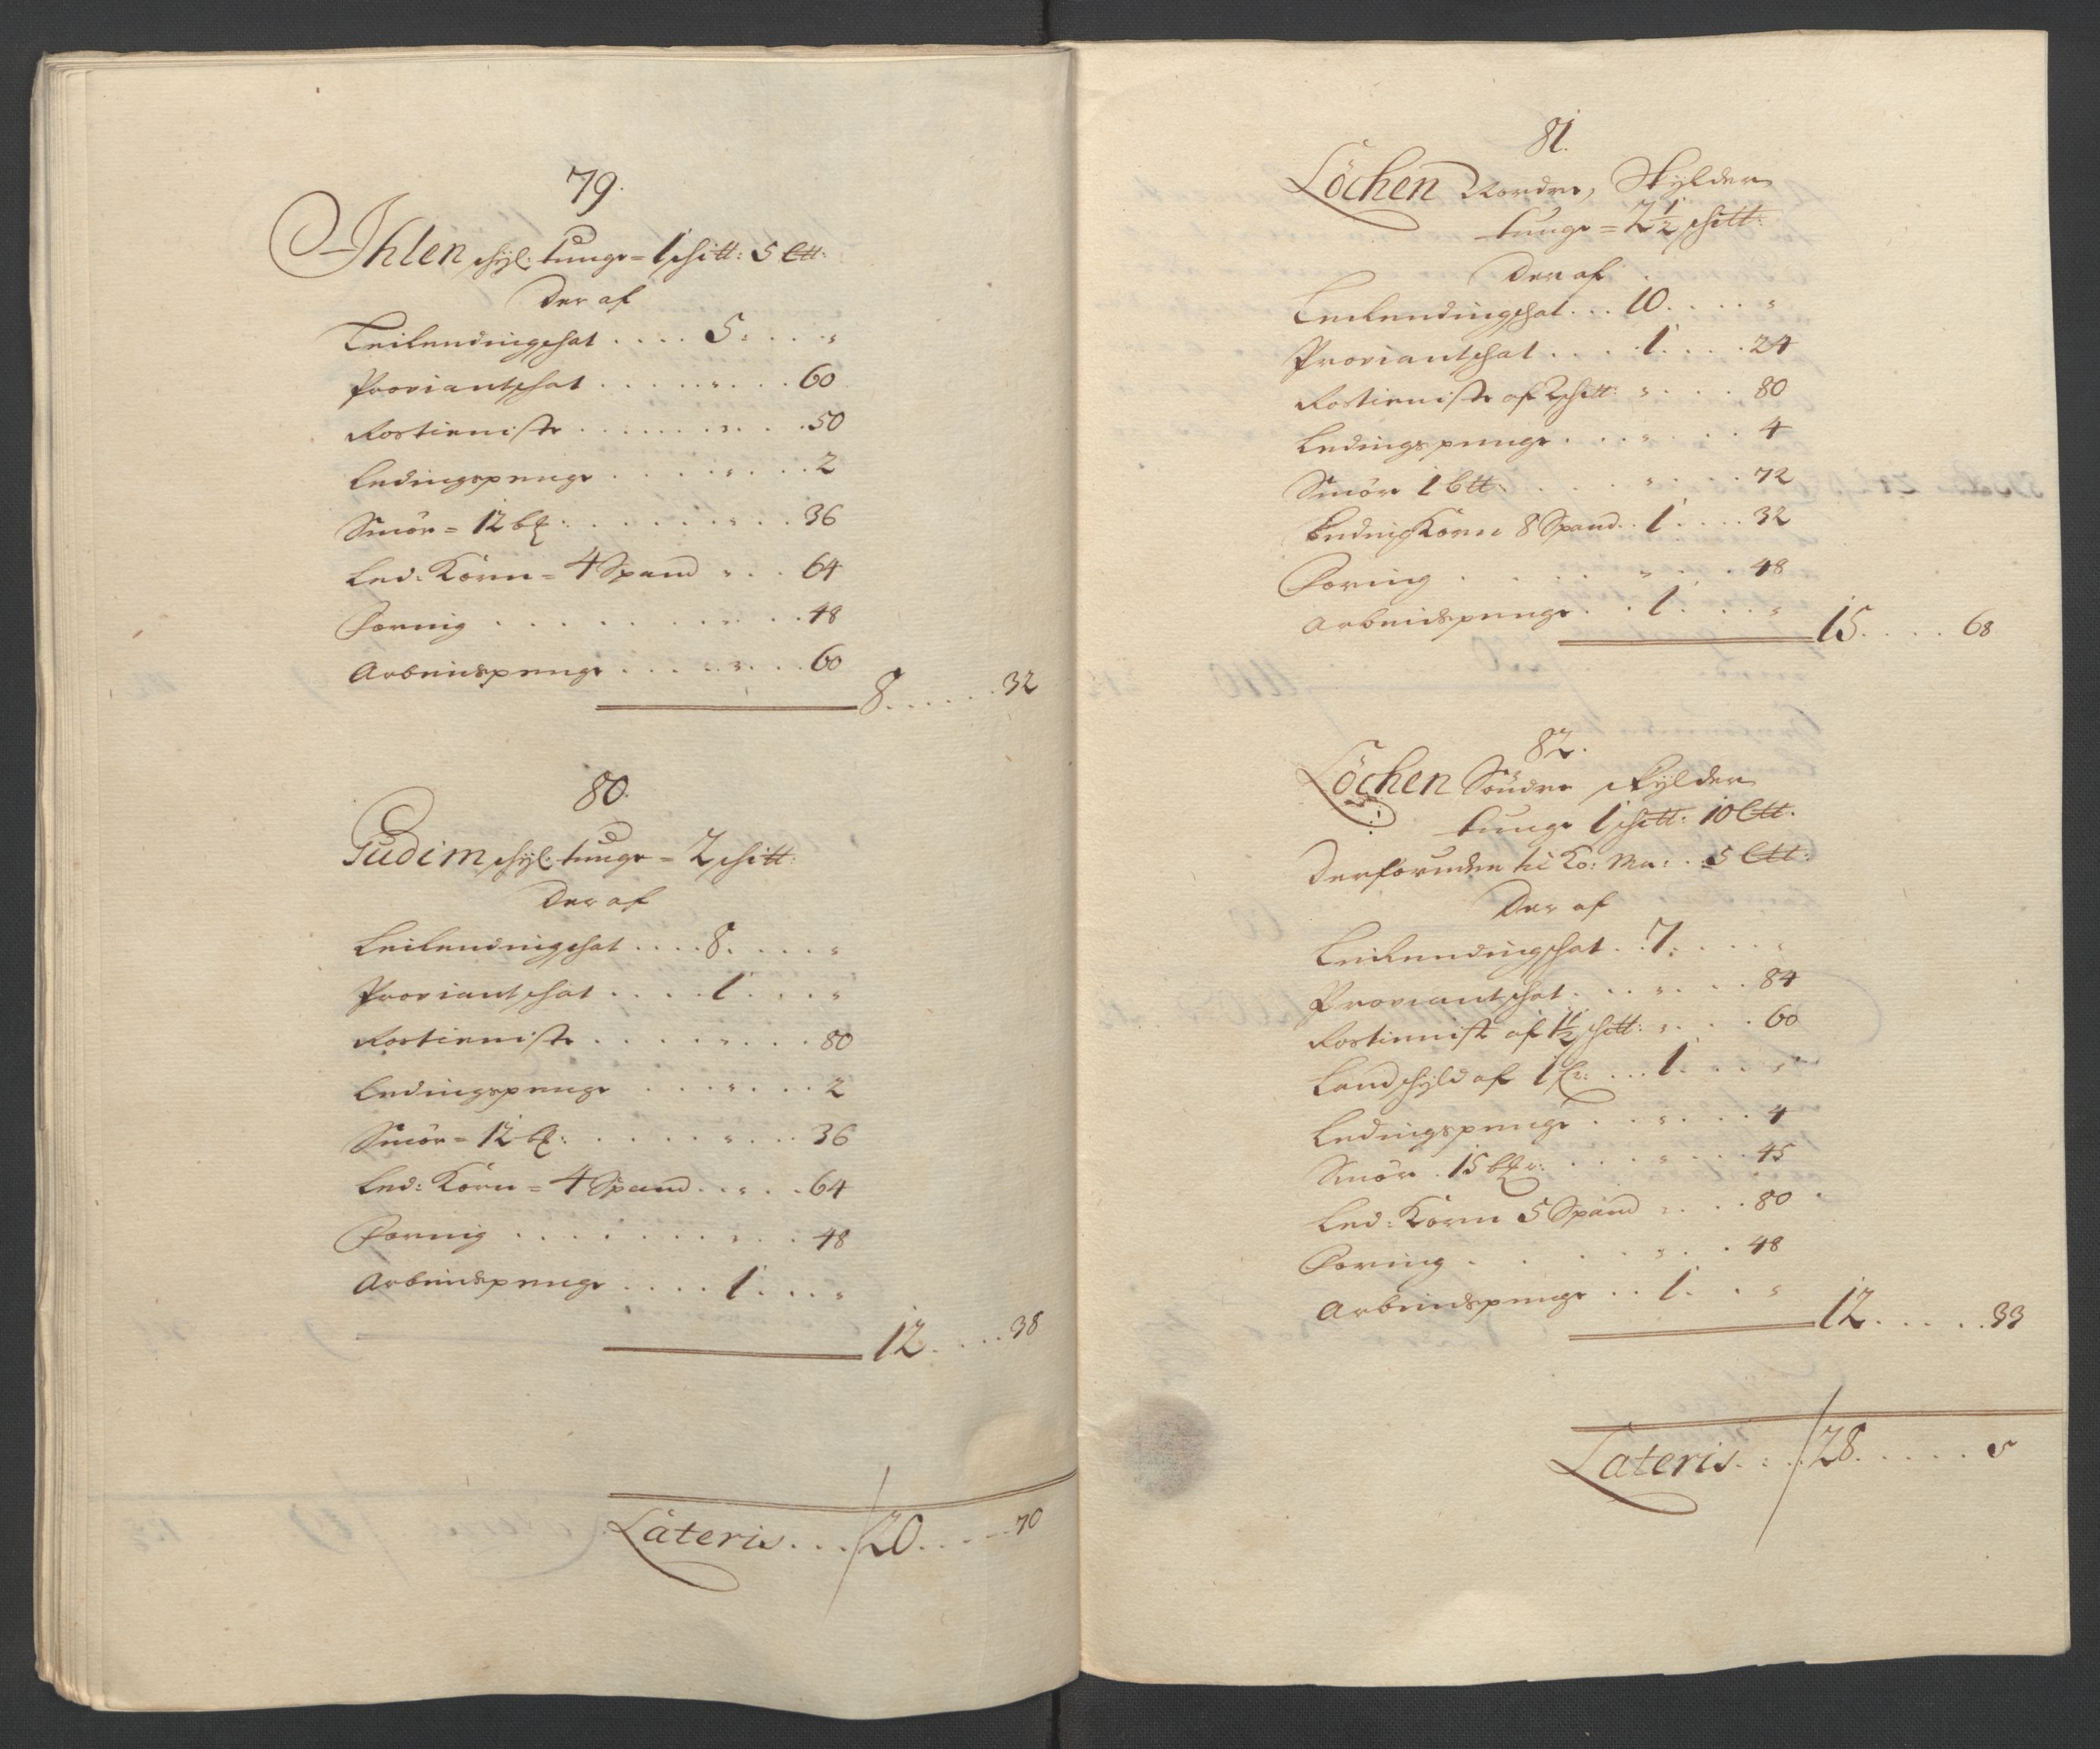 79.
Ihlen schÿl: tunge = 1 schitt: 5 Ltt:
Der af
Leilendingschat .... 5. ... "
Proviantschat ..... " ... 60
Rostieniste ...... " ... 50
Ledingspenge .... " ... 2
Smör = 12 b[?]: ...... " ... 36
Led: Korn = 4 Spand " .. 64
Foring ........ " .. 48
Arbeidspenge ..... " ... 60
8. ..... 32
80.
Gudim schÿl: tunge = 2 schitt:
Der af
Leilendingschat .... 8. ... "
Proviantschat .... 1 ... "
Rostieniste ..... " ... 80
Ledingspenge ... " ... 2
Smör = 12 b: ..... " ... 36
Led: Korn = 4 Spand .. " .. 64
Foring ........ " .. 48
Arbeidspenge .... 1 ... "
12. ... 38
Lateris ... / 20. .... 70
81.
Löchen Nordre, Skÿlder
tunge = 2 1/2 schitt:
Der af
Leilendingschat ... 10. ... "
Proviantschat .... 1. ... 24
Rostieniste af 2 schitt: " ... 80
Ledingspenge ... " ... 4
Smör 1 btt: .... " ... 72
Leding Korn 8 Spand .. 1 ... 32
Foring ..... " ... 48
Arbeidspenge .. 1. ... "
15. ... 68
82.
Löchen Söndre skÿlder
tunge 1 schitt: 10 Ltt:
Derforuden til Ko: Ma: .. 5 Ltt:
Der af
Leilendingschat .. 7. ... "
Proviantschat ... " ... 84
Rostieniste af 1 1/2 schitt: " ... 60
Landschÿld af 1 ... 1. ... "
Ledingspenge ... " ... 4
Smör . 15 b: .... " ... 45
Led: Korn 5 Spand " ... 80
Foring ..... " ... 48
Arbeidspenge .. 1. .. "
12. .... 33
Lateris .... / 28. .... 5